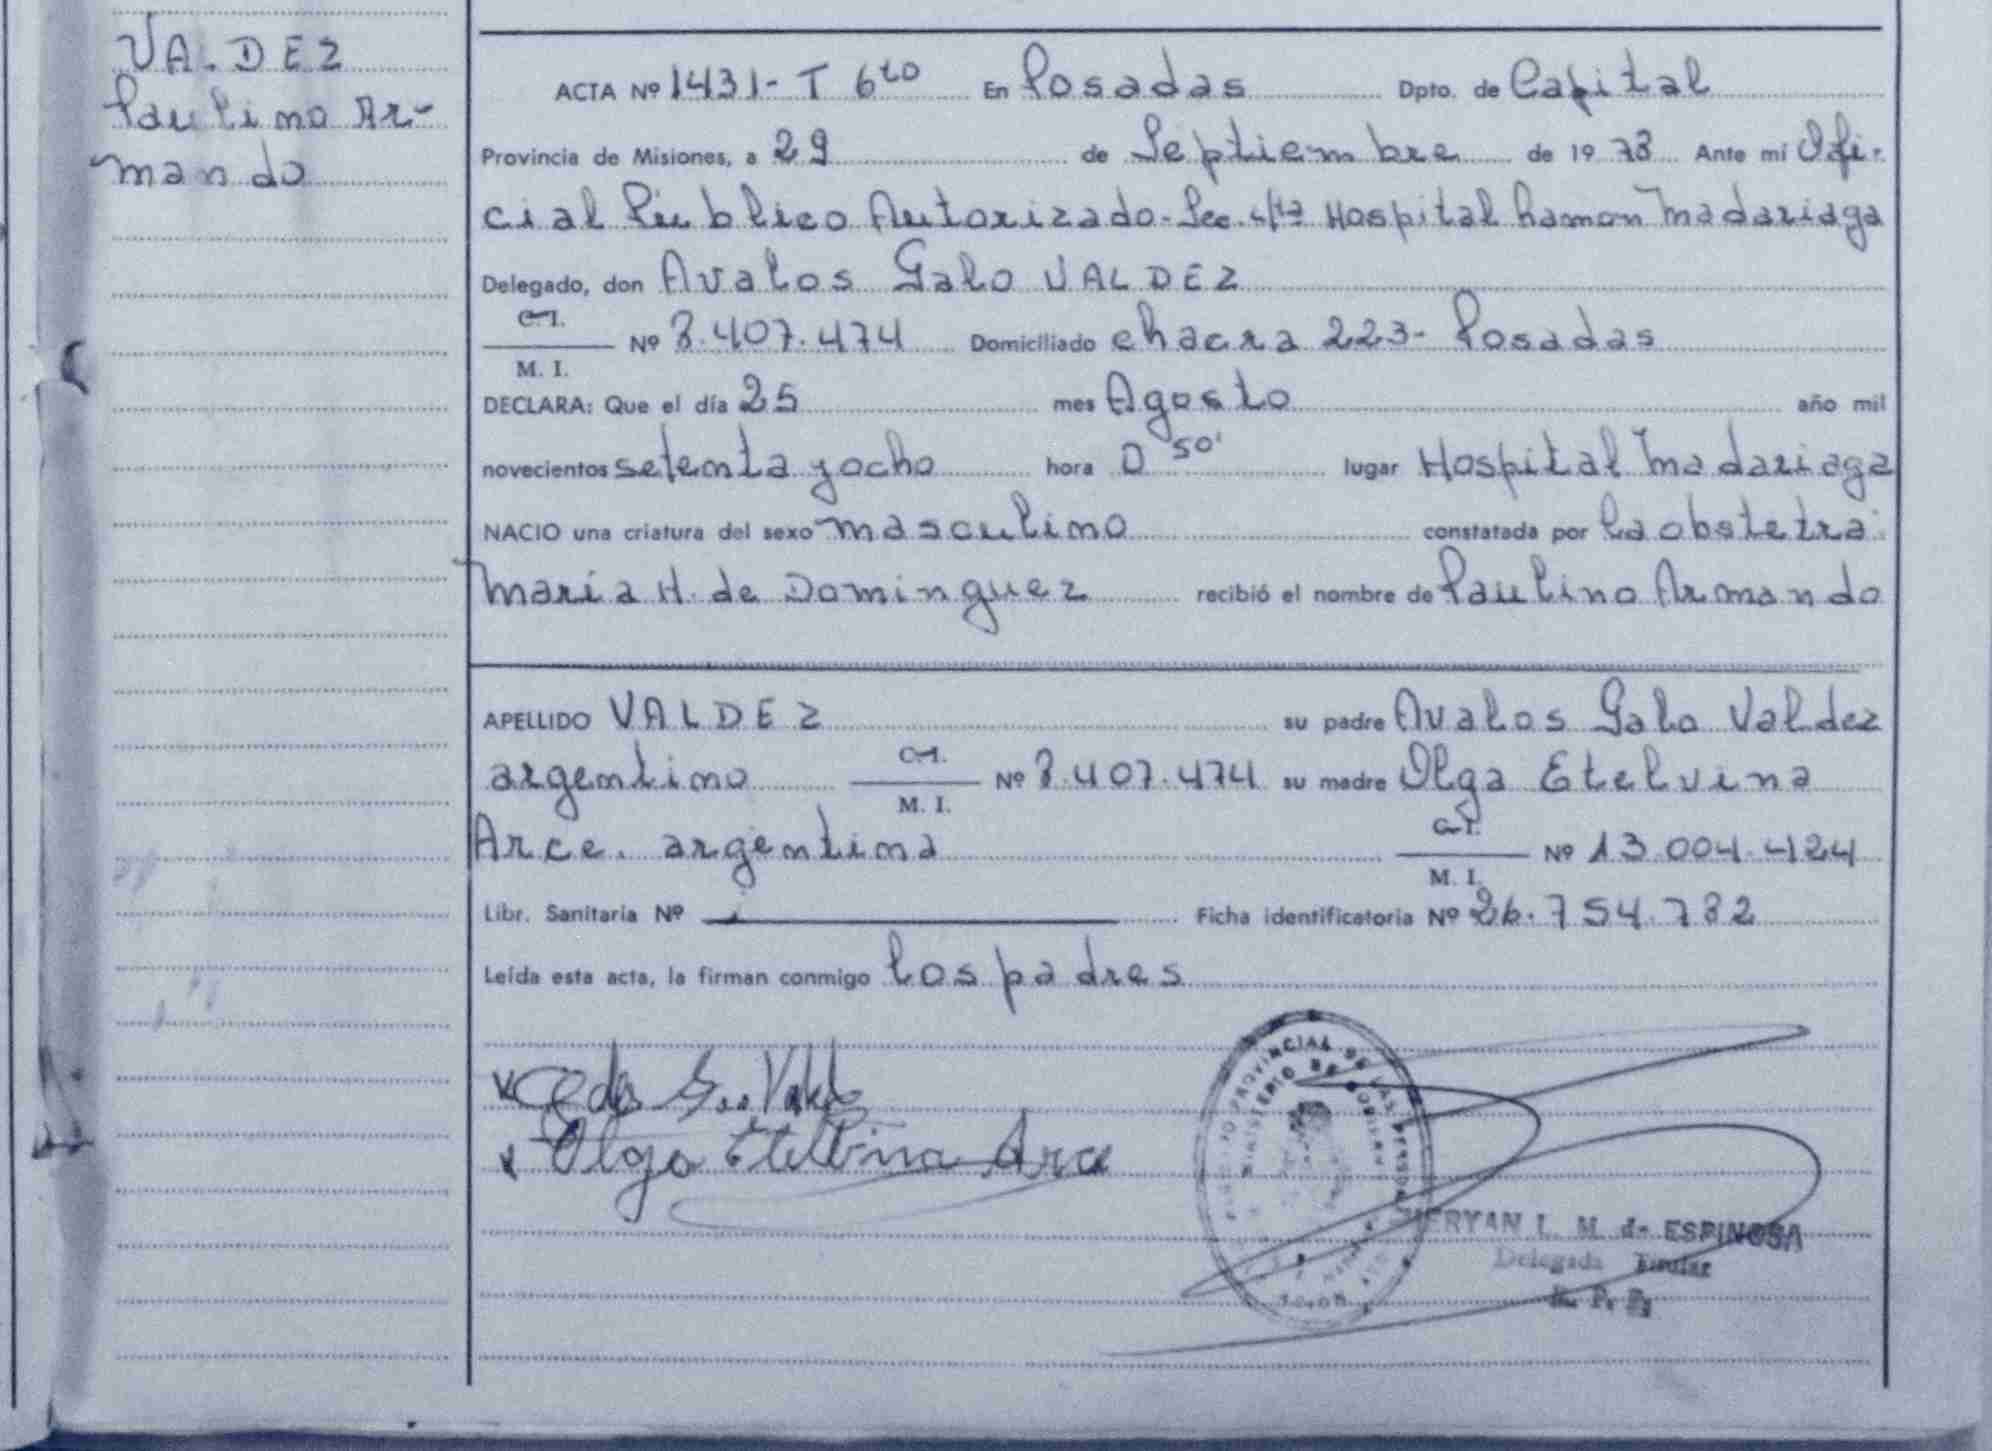 VALDEZ
Paulino Ar-
mando
ACTA Nº 1431- T 6to En Posadas Dpto. de Capital
Provincia de Misiones, a 29 de Septiembre de 1978 Ante mí Ofi-
cial Público Autorizado- Sec. 4ta Hospital Ramon Madariaga
Delegado, don Avalos Galo VALDEZ
C. I.
M. I. Nº 8.407.474 Domiciliado chacra 223- Posadas
DECLARA: Que el día 25 mes Agosto año mil
novecientos setenta y ocho hora 0 50' lugar Hospital Madariaga
NACIO una criatura del sexo masculino constatada por la obstetra
María H. de Dominguez recibió el nombre de Paulino Armando
APELLIDO VALDEZ su padre Avalos Galo Valdez
argentino C. I. M. I. Nº 8.407.474 su madre Olga Etelvina
Arce. argentina C. I. M. I. Nº 13.004.424
Libr. Sanitaria Nº Ficha identificatoria Nº 26.754.782
Leída esta acta, la firman conmigo los padres
Valdez
Olga Etelbina Arce
PROVINCIAL DE LAS PERSONAS
MINISTERIO DE GOBIERNO
MERYAN I. M. de ESPINOSA
Delegada Titular
R. P. P.